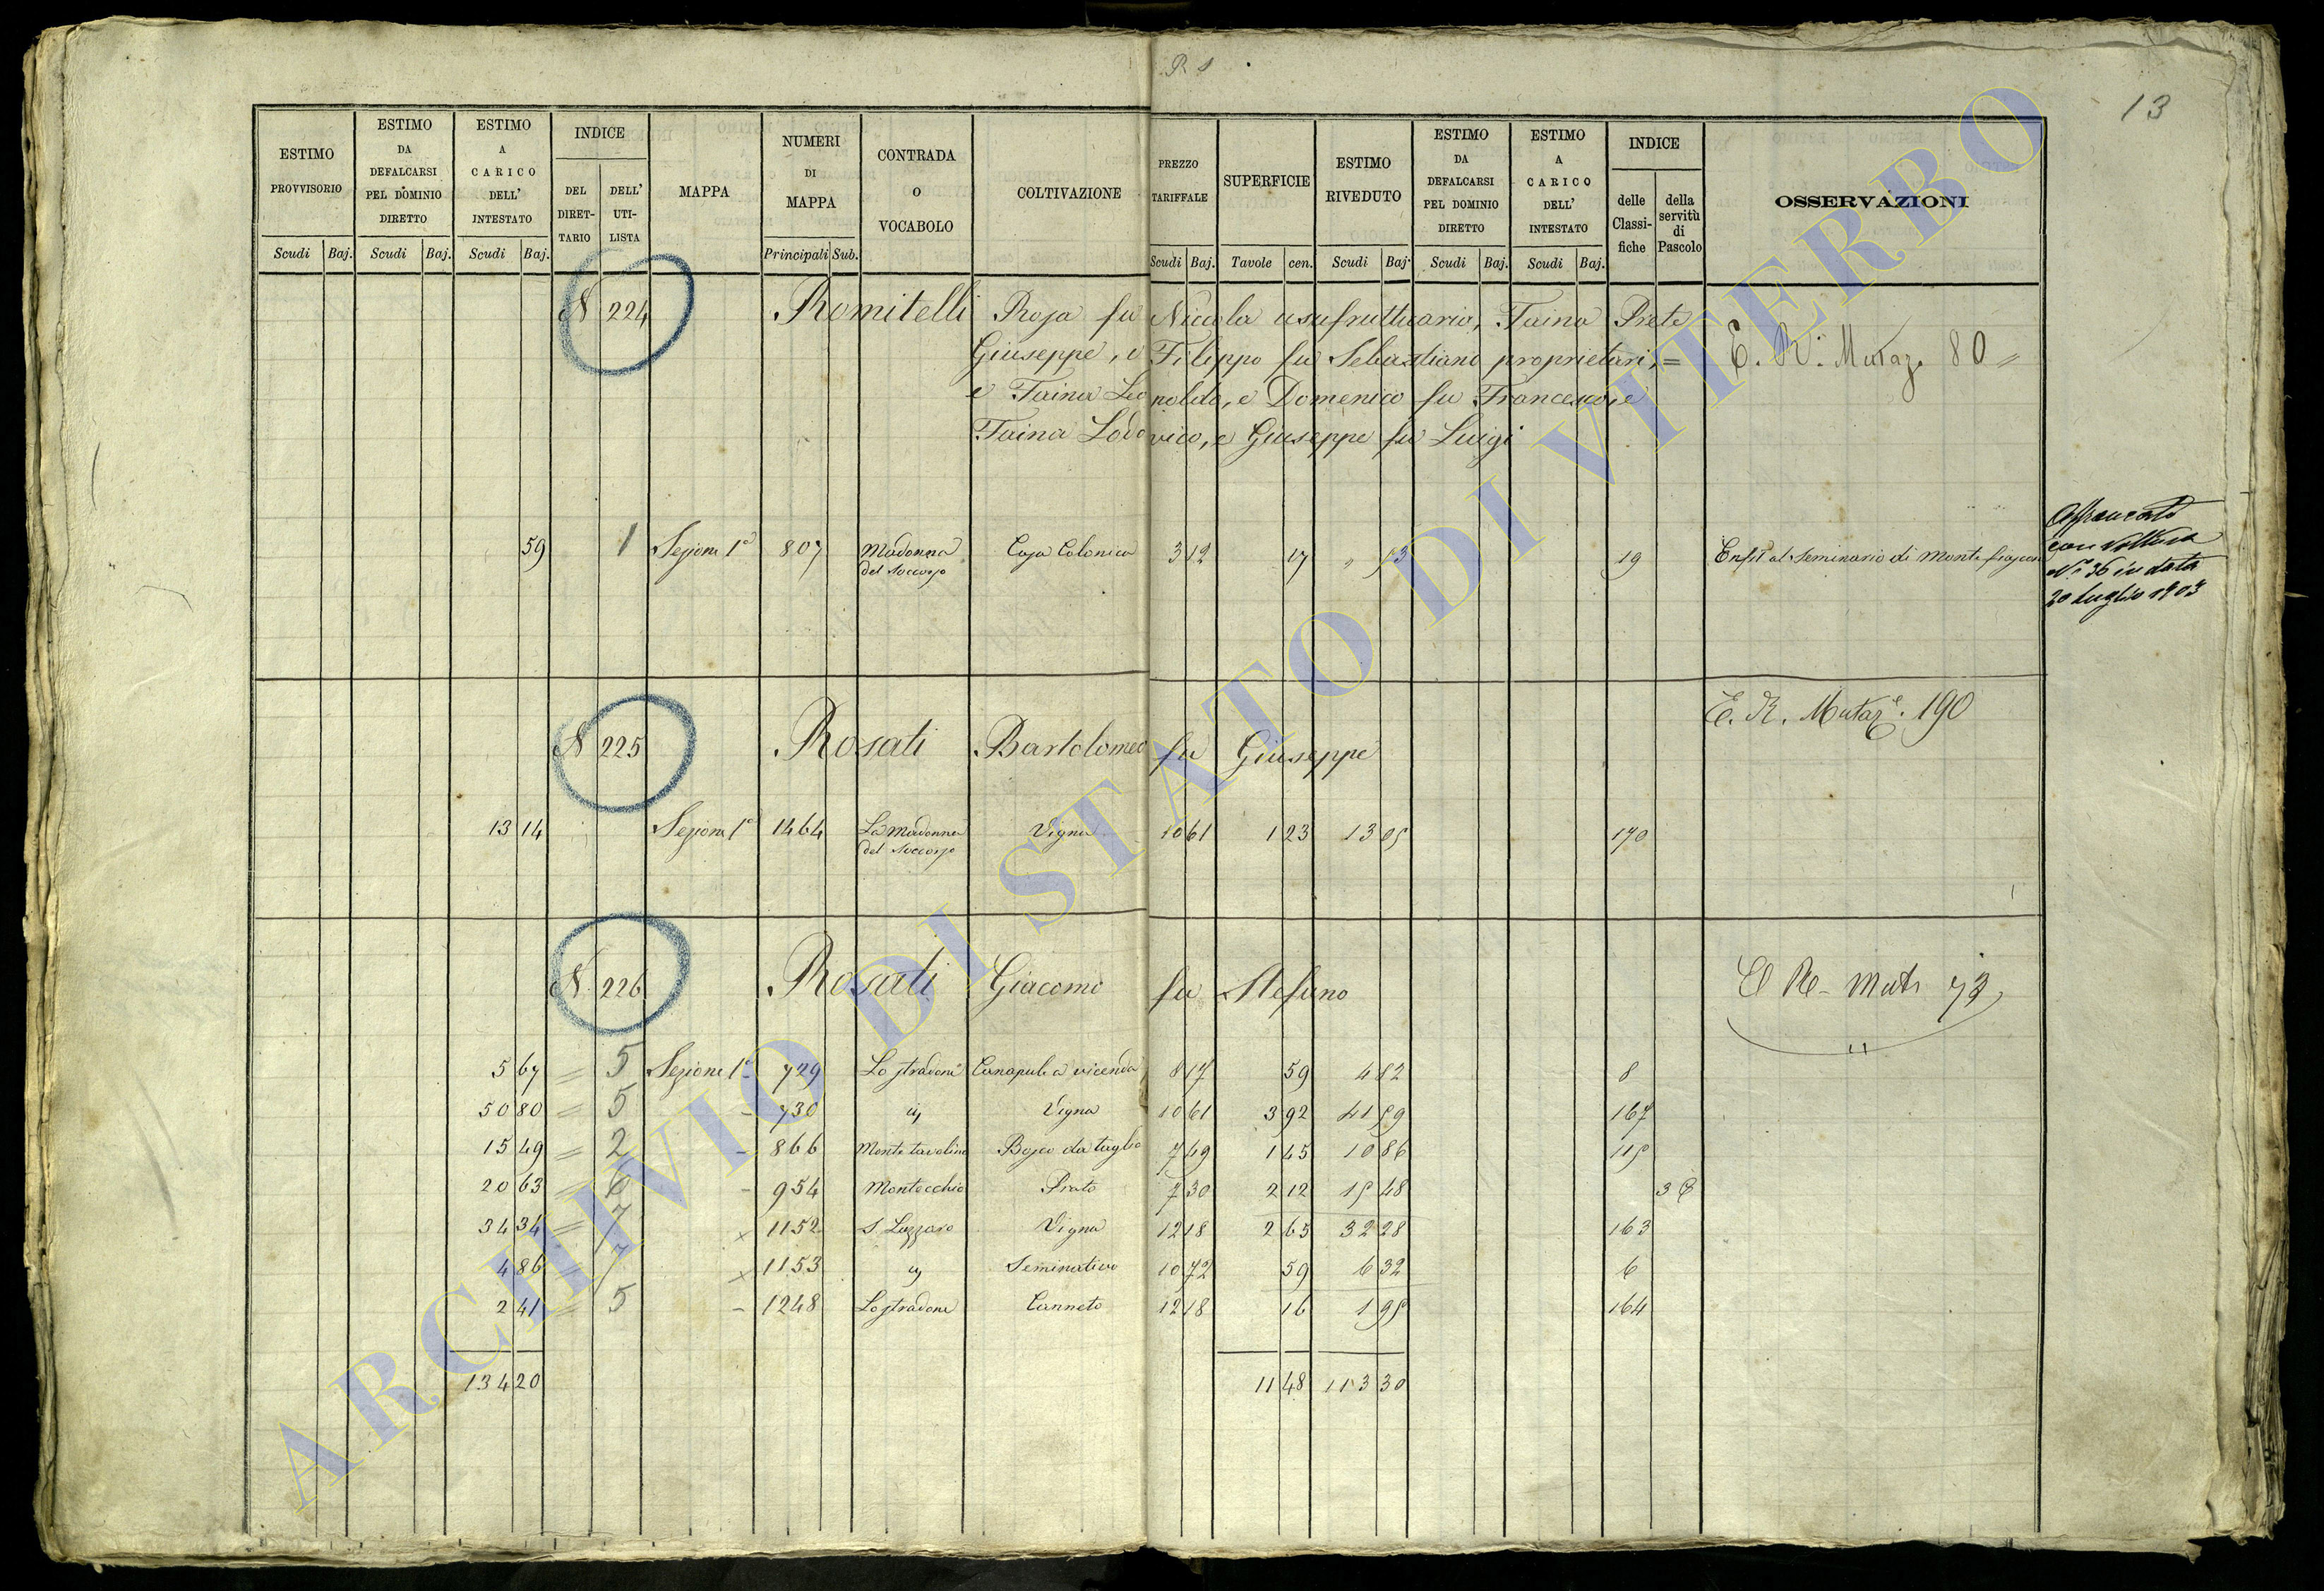 R s
13
ESTIMO PROVVISORIO
ESTIMO DA DEFALCARSI PEL DOMINIO DIRETTO
ESTIMO A CARICO DELL' INTESTATO
INDICE
DEL DIRET-TARIO
DELL' UTI-LISTA
MAPPA
NUMERI DI MAPPA
CONTRADA O VOCABOLO
COLTIVAZIONE
PREZZO TARIFFALE
SUPERFICIE
ESTIMO RIVEDUTO
ESTIMO DA DEFALCARSI PEL DOMINIO DIRETTO
ESTIMO A CARICO DELL' INTESTATO
INDICE
delle Classi-fiche
della servitù di Pascolo
OSSERVAZIONI
Scudi Baj. Scudi Baj. Scudi Baj. Principali Sub. Scudi Baj. Tavole cen. Scudi Baj. Scudi Baj. Scudi Baj.
N 224 Romitelli Rosa fu Nicola usufruttuario, Faina Prete
Giuseppe, e Filippo fu Sebastiano proprietari, = E. R. Mutaz. 80 =
e Faina Leopoldo, e Domenico fu Francesco, e
Faina Lodovico, e Giuseppe fu Luigi
59 1 Sezione 1a 807 Madonna del Soccorso Casa Colonica 3 12 17 " 53 19 Enfit al Seminario di Montefiascone
Affrancato
con Voltura
N. 36 in data
20 luglio 1903
E. R. Mutaze. 190
N 225 Rosati Bartolomeo fu Giuseppe
13 14 Sezione 1a 1464 La Madonna del Soccorso Vigna 10 61 1 23 13 05 170
N. 226 Rosati Giacomo fu Stefano
E Re- Mut 73
5 67 = 5 Sezione 1a - 729 Lo stradone Canapule a vicenda 8 17 59 4 82 8
50 80 = 5 - 730 id Vigna 10 61 3 92 41 59 167
15 49 = 2 - 866 Monte tavolino Bosco da taglio 7 49 1 45 10 86 115
20 63 = 6 - 954 Montecchio Prato 7 30 2 12 15 48 3
34 34 = 7 x 1152 S. Lazzaro Vigna 12 18 2 65 32 28 163
4 86 = 7 x 1153 id Seminativo 10 72 59 6 32 6
2 41 = 5 - 1248 Lo stradone Canneto 12 18 16 1 95 164
134 20 11 48 113 30
ARCHIVIO DI STATO DI VITERBO